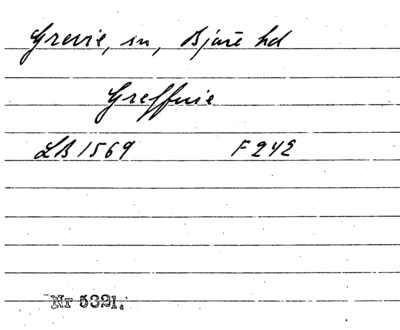 Grevie, sn, Bjäre hd
Greffuie
LB 1569 F 242
Nr 5321.